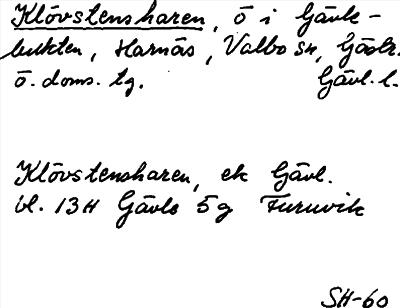 Klövstensharen, ö i Gävle-
bukten, Harnäs, Valbo sn, Gästr.
ö. doms. tg. Gävl. l.
Klövstensharen, ek Gävl.
bl. 13H Gävle 5g Furuvik
SH-60